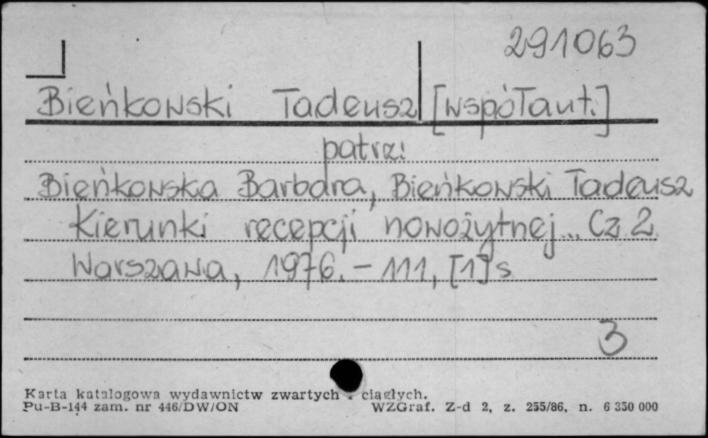 291063
Bieńkowski Tadeusz [współaut.]
patrz:
Bieńkowska Barbara, Bieńkowski Tadeusz
Kierunki recepcji nowożytnej... Cz. 2
Warszawa, 1976. – 111, [1] s
3
Karta katalogowa wydawnictw zwartych i ciągłych.
Pu-B-144 zam. nr 446/DW/ON WZGraf. Z-d 2, z. 255/86, n. 6 350 000